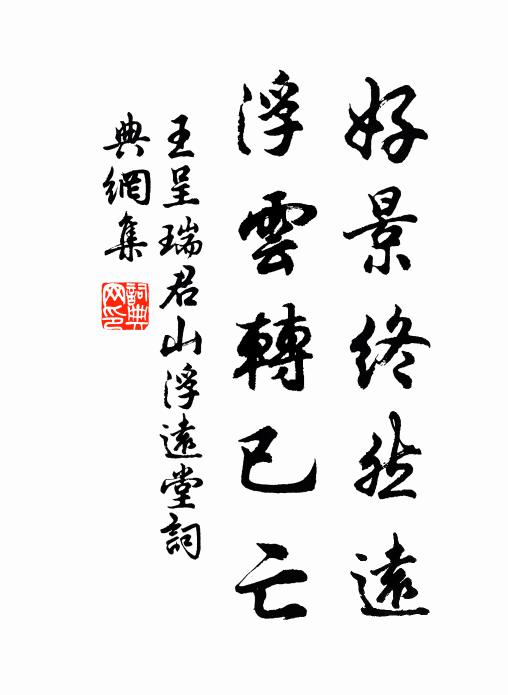 好景終然遠
浮雲轉已亡
王呈瑞君山浮遠堂詞
典網集
詞典網印